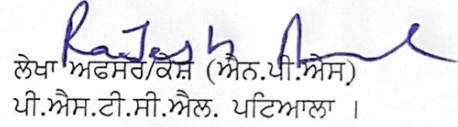 ਲੇਖਾ ਅਫਸਰ/ਕੈਸ਼ (ਐਨ.ਪੀ.ਐਸ)
ਪੀ.ਐਸ.ਟੀ.ਸੀ.ਐਲ. ਪਟਿਆਲਾ ।